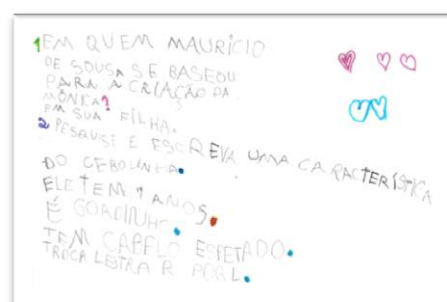 1 EM QUEM MAURÍCIO
DE SOUSA SE BASEOU
PARA A CRIAÇÃO DA
MÔNICA?
EM SUA FILHA.
2 PESQUISE E ESCREVA UMA CARACTERÍSTICA
DO CEBOLINHA.
ELE TEM 7 ANOS.
É GORDINHO.
TEM CABELO ESPETADO.
TROCA LETRA R POR L.